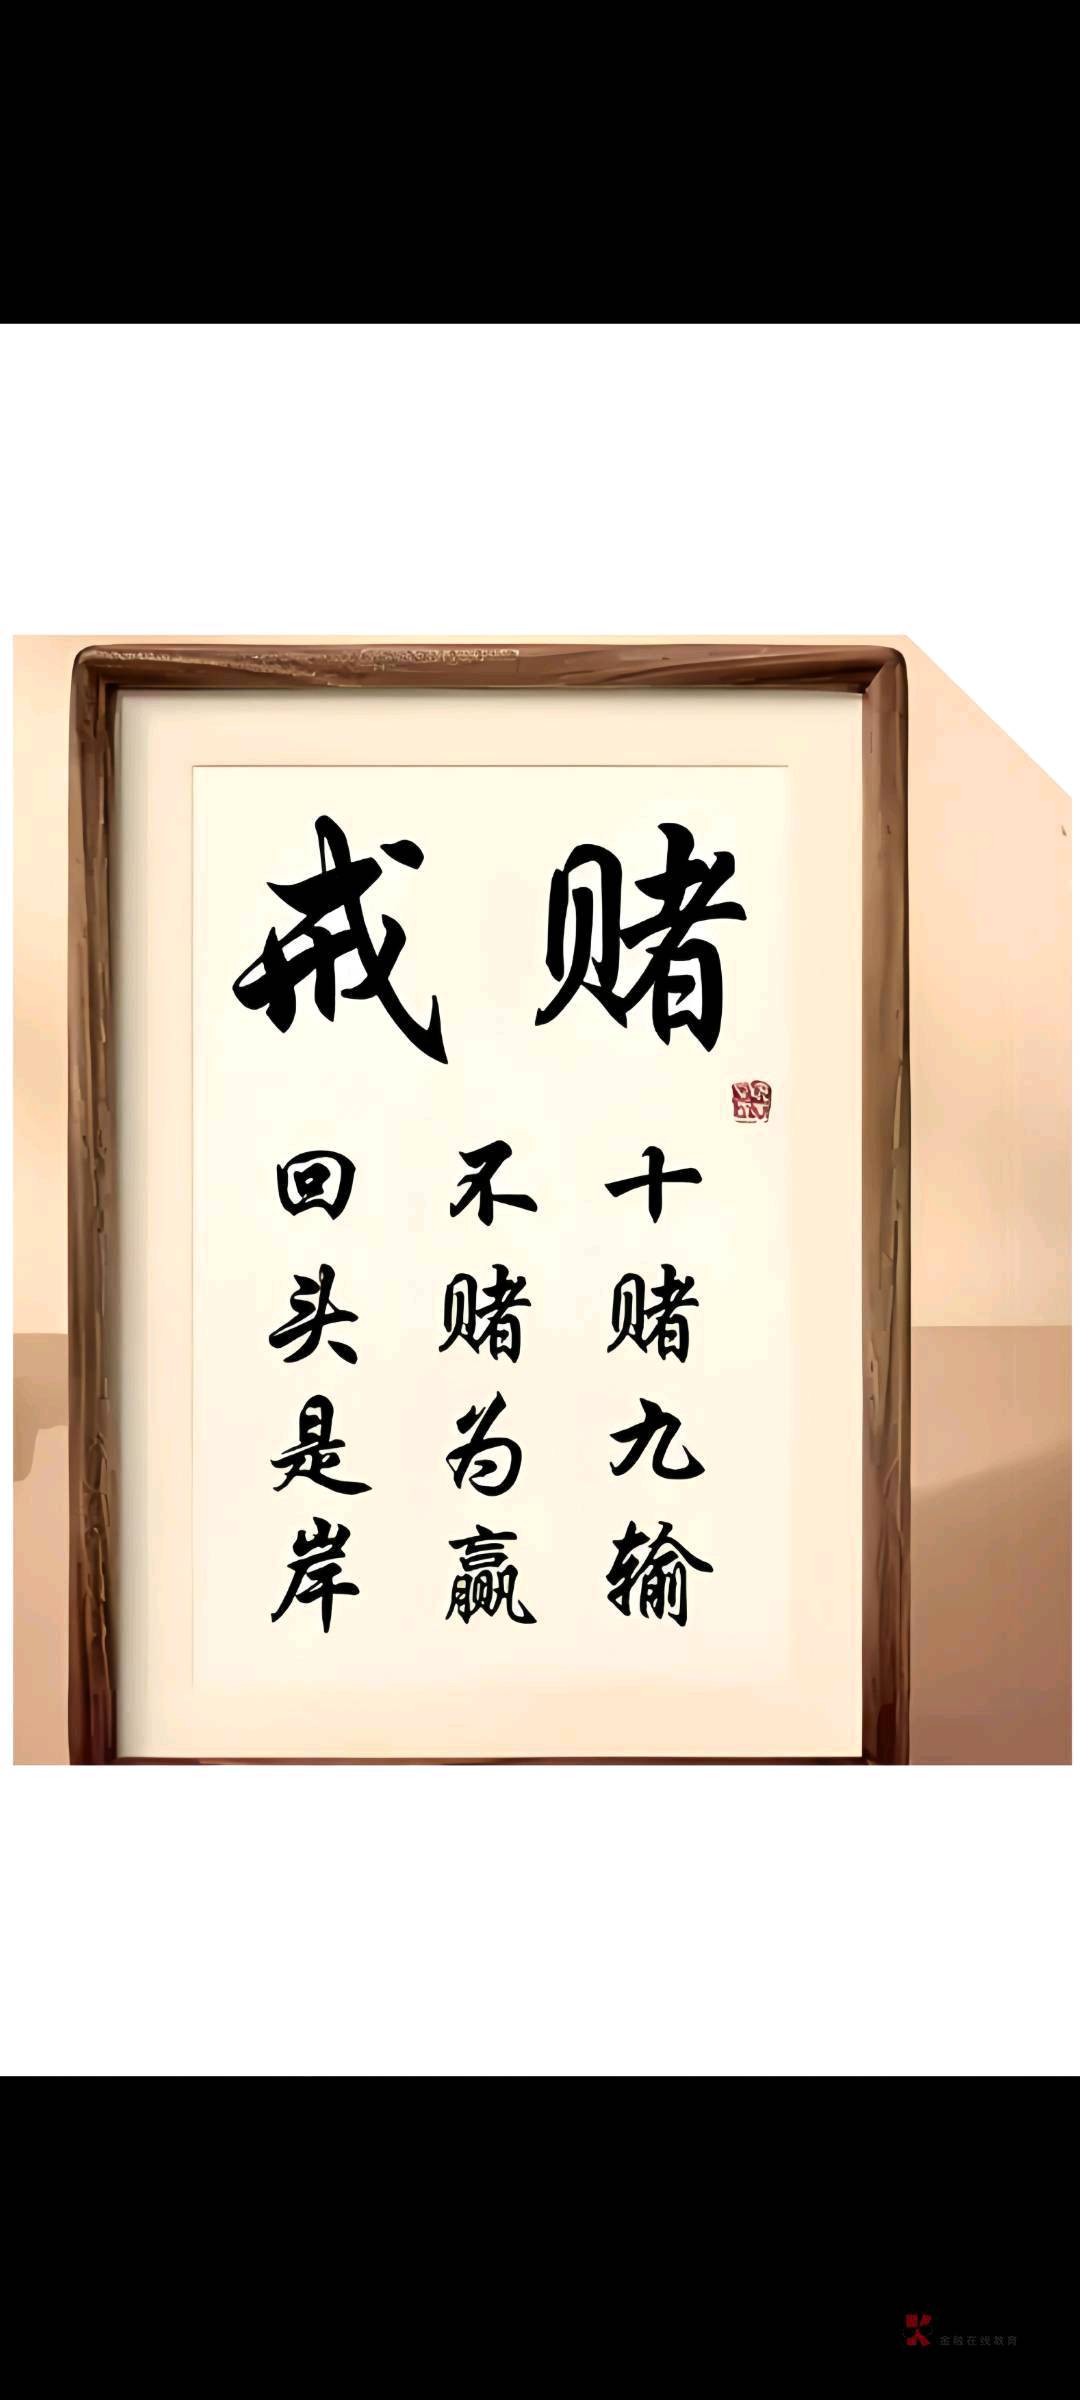 戒赌
十赌九输
不赌为赢
回头是岸
金融在线教育